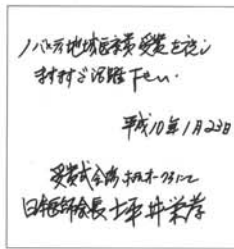 地域医療賞 受賞を祝し
ますますご活躍下さい.
平成10年1月23日
受賞式会場ホテルオークラにて
日本医師会長 坪井栄孝